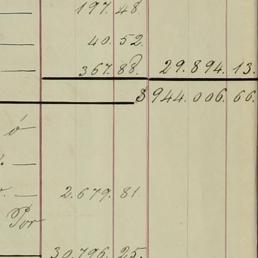 197.48
40.52.
367.88. 29.894.13.
$944.006.66.
ó
2.679.81.
Por
30.796.25.